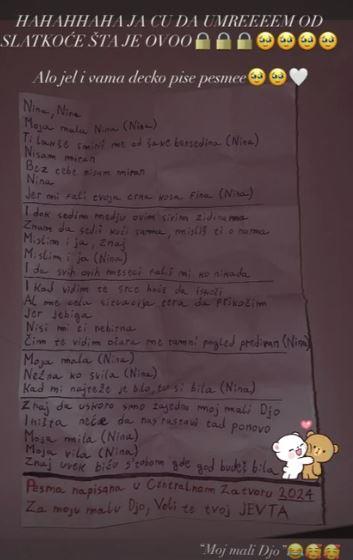 HAHAHHAHA JA CU DA UMREEEEM OD
SLATKOĆE ŠTA JE OVOO🔒🔒🔒🥹🥹🥹🥹
Alo jel i vama decko pise pesmee🥹🥹🤍
Nina, Nina
Moja mala Nina (Nina)
Ti lakše smiriš me od šake bensedina (Nina)
Nisam miran
Bez tebe nisam miran
Nina
Jer mi fali tvoja crna kosa fina (Nina)
I dok sedim medju ovim sivim zidinama
Znam da sediš kući sama, misliš ti o nama
Mislim i ja, znaj
Mislim i ja (Nina)
I da svih ovih meseci fališ mi ko nikada
I kad vidim te srce hoće da iskoči
Al me cela situacija tera da prikočim
Jer jebiga
Nisi mi ti nebitna
Čim te vidim očara me tamni pogled predivan (Nina)
Moja mala (Nina)
Nežna ko svila (Nina)
Kad mi najteže je bilo, tu si bila (Nina)
Znaj da uskoro smo zajedno moj mali Djo
I ništa neće da nas rastavi tad ponovo
Moja mila (Nina)
Moja vila (Nina)
Znaj uvek biću s'tobom gde god budeš bila
Pesma napisana u Centralnom Zatvoru 2024
Za moju malu Djo, Voli te tvoj JEVTA
"Moj mali Djo"😂🥰🥰